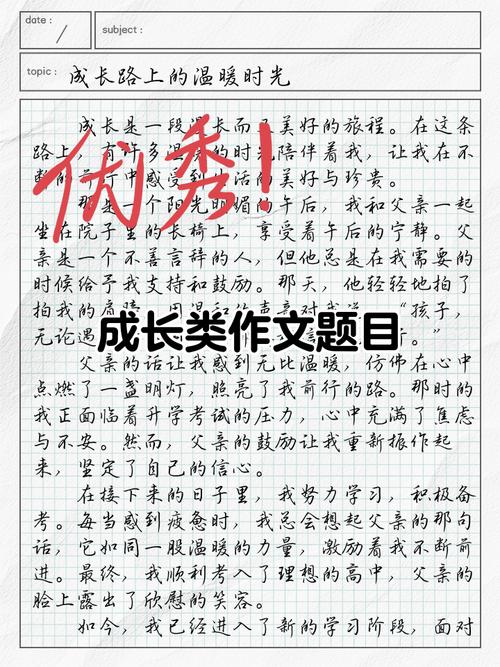 date:
subject:
topic: 成长路上的温暖时光
成长是一段漫长而又美好的旅程。在这条
路上,有许多温暖的时光陪伴着我,让我在不
断的前行中感受到生活的美好与珍贵。
那是一个阳光明媚的午后,我和父亲一起
坐在院子里的长椅上,享受着午后的宁静。父
亲是一个不善言辞的人,但他总是在我需要的
时候给予我支持和鼓励。那天,他轻轻地拍了
拍我的肩膀,用温和的声音对我说:“孩子,
无论遇
父亲的话让我感到无比温暖,仿佛在心中
点燃了一盏明灯,照亮了我前行的路。那时的
我正面临着升学考试的压力,心中充满了焦虑
与不安。然而,父亲的鼓励让我重新振作起
来,坚定了自己的信心。
在接下来的日子里,我努力学习,积极备
考。每当感到疲惫时,我总会想起父亲的那句
话,它如同一股温暖的力量,激励着我不断前
进。最终,我顺利考入了理想的高中,父亲的
脸上露出了欣慰的笑容。
如今,我已经进入了新的学习阶段,面对
优秀!
成长类作文题目